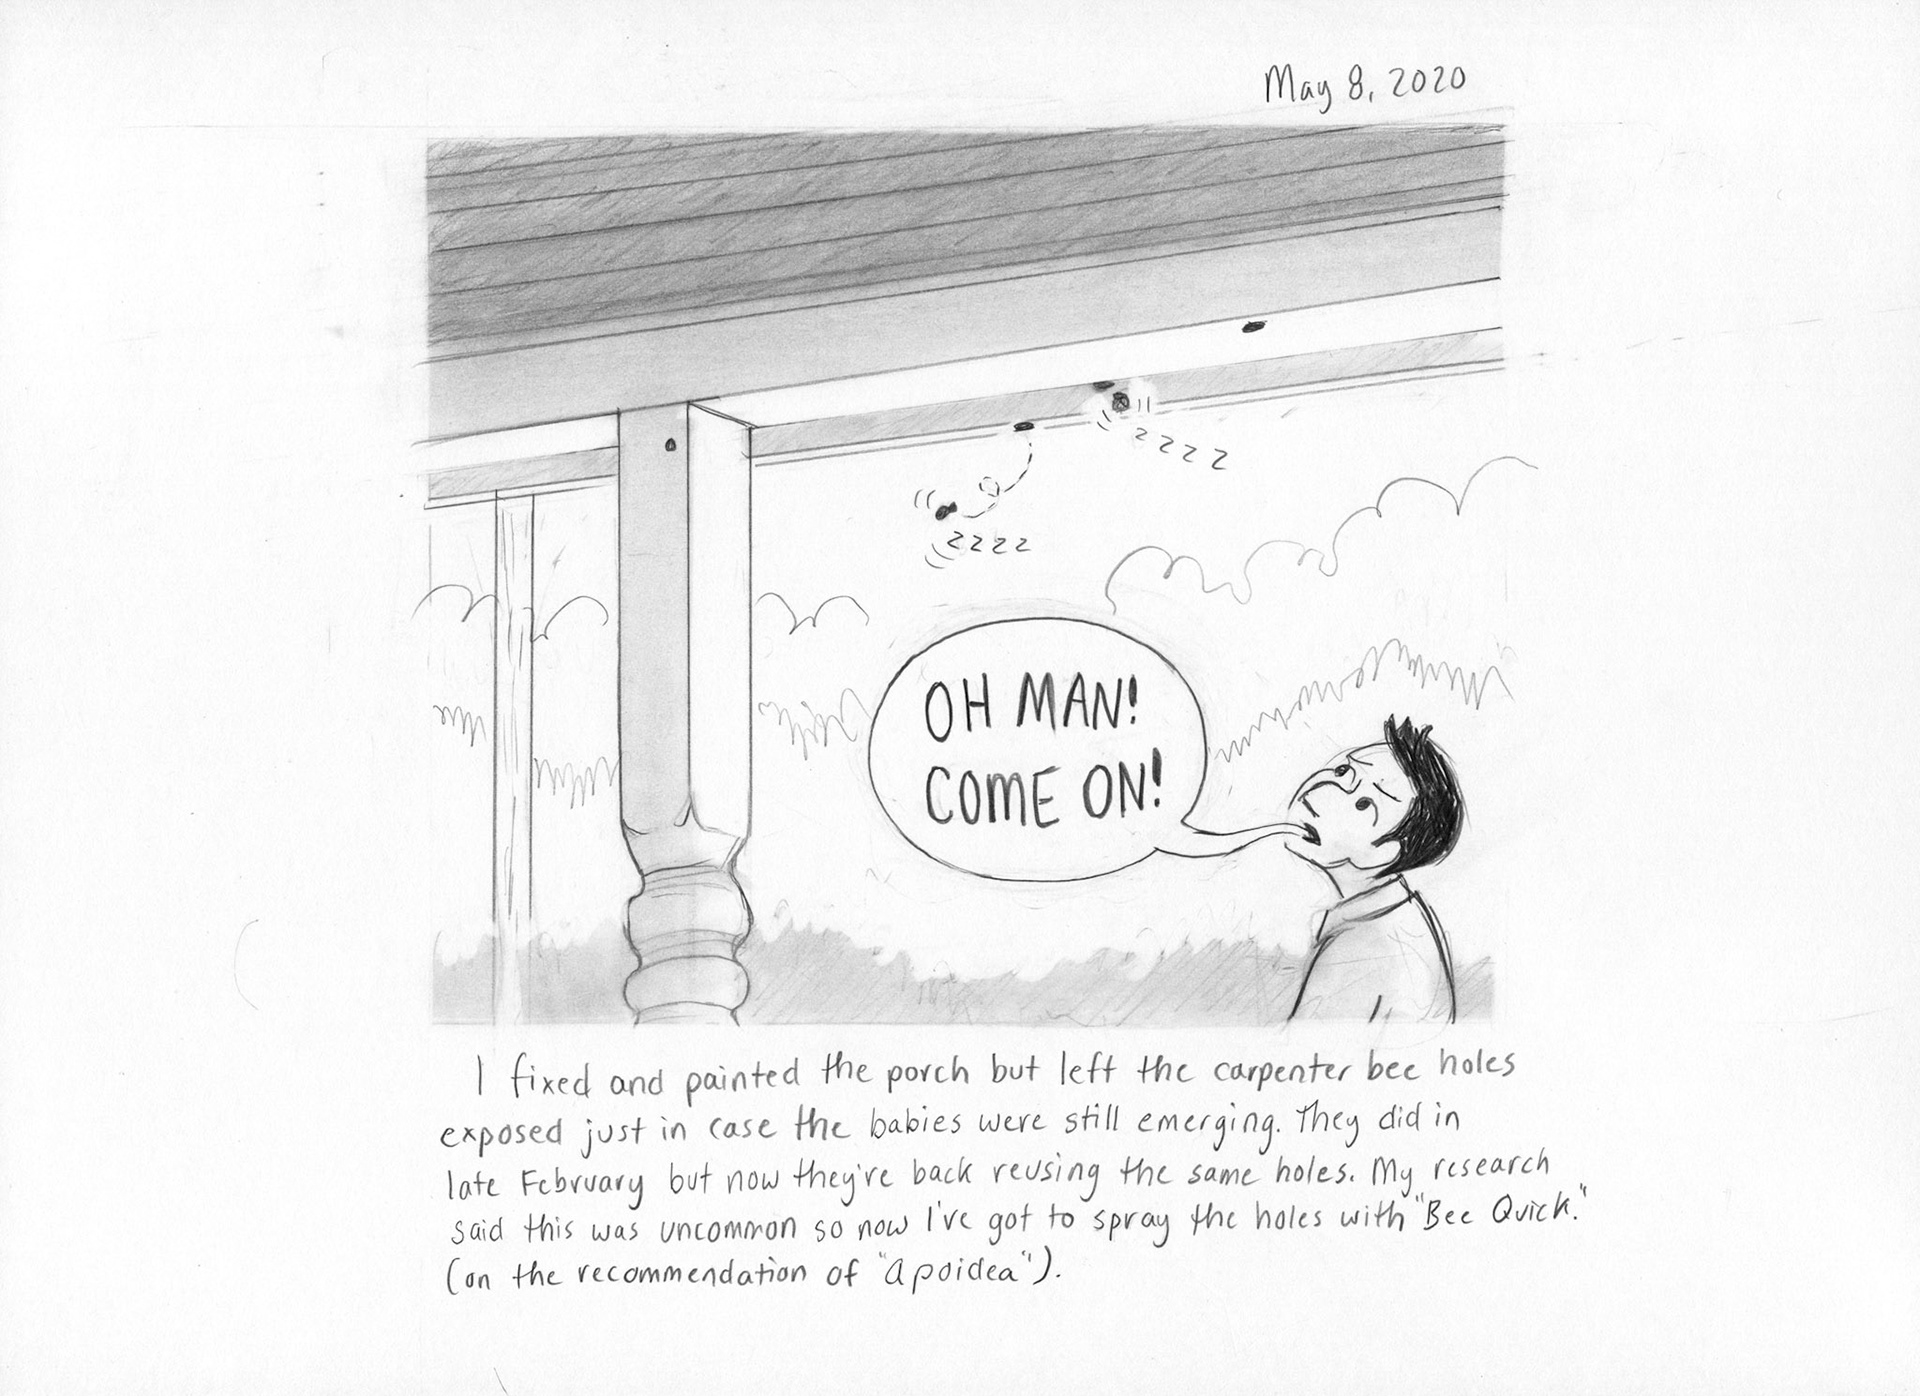 May 8, 2020
zzzz
zzzz
OH MAN!
COME ON!
I fixed and painted the porch but left the carpenter bee holes
exposed just in case the babies were still emerging. They did in
late February but now they're back reusing the same holes. My research
said this was uncommon so now I've got to spray the holes with "Bee Quick."
(on the recommendation of "Apoidea").